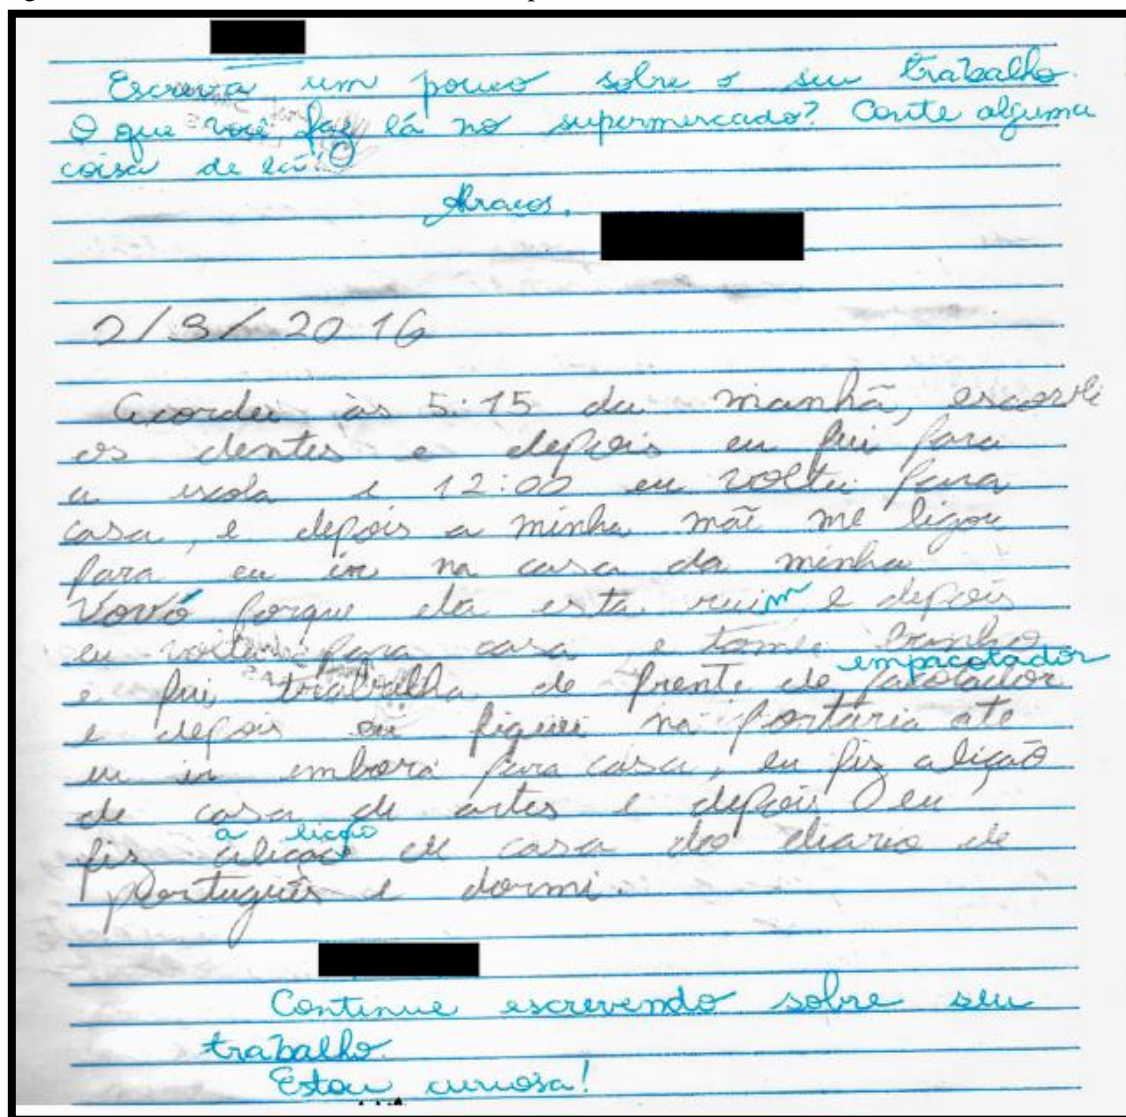 Escreva um pouco sobre o seu trabalho.
O que você faz lá no supermercado? Conte alguma
coisa de lá!
Abraços,
2/3/2016
Acordei às 5:15 da manhã, escovei
os dentes e depois eu fui para
a escola e 12:00 eu voltei para
casa, e depois a minha mãe me ligou
para eu ir na casa da minha
Vovó porque ela esta ruim e depois
eu voltei para casa e tomei banho
empacotador
e fui trabalha de frente de pacotador
e depois eu fiquei na portaria ate
eu ir embora para casa, eu fiz a lição
de casa de artes e depois eu
a lição
fiz alição de casa do diario de
português e dormi.
Continue escrevendo sobre seu
trabalho.
Estou curiosa!